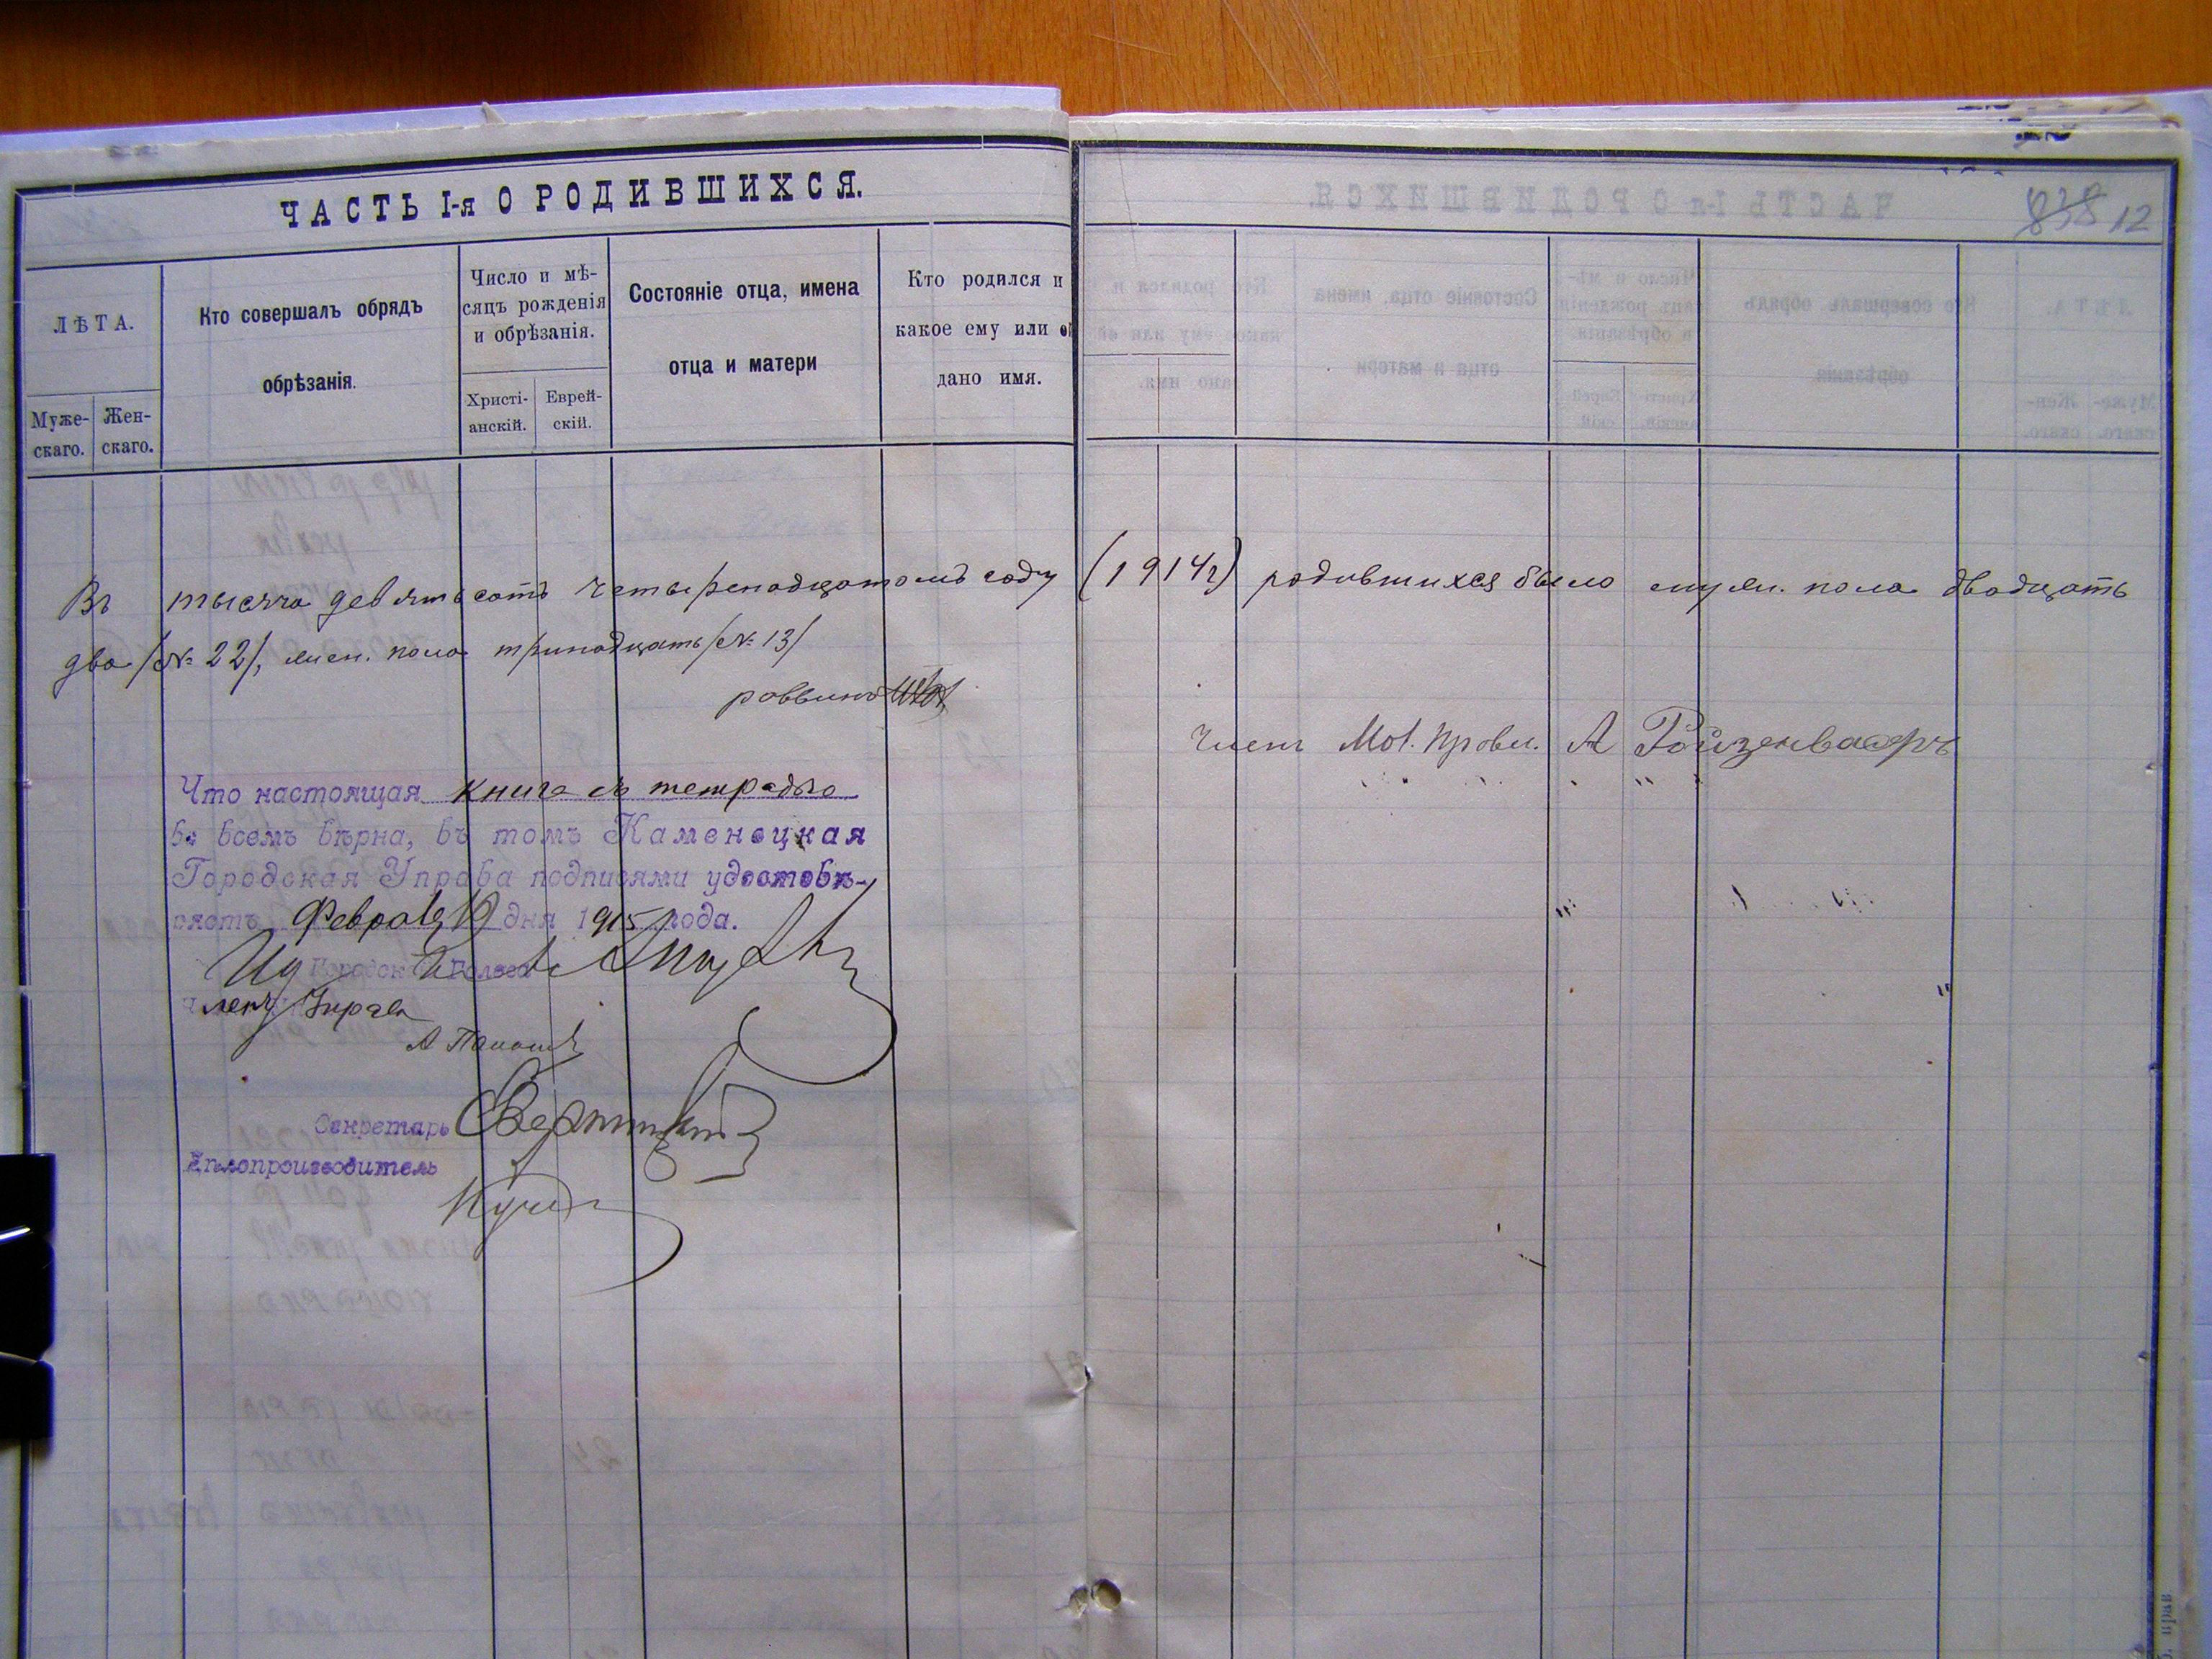 ЧАСТЬ I-я О РОДИВШИХСЯ.
838 12
ЛѢТА.
Муже-
скаго.
Жен-
скаго.
Кто совершалъ обрядъ
обрѣзанія.
Число и мѣ-
сяцъ рожденія
и обрѣзанія.
Христі-
анскій.
Еврей-
скій.
Состояніе отца, имена
отца и матери
Кто родился и
какое ему или
дано имя.
Въ тысяча девятьсотъ четырнадцатомъ году (1914г) родившихся было муж. пола двадцать
два /№ 22/, жен. пола тринадцать /№ 13/
раввинъ
Членъ Мол. Правл. А Ройзенвассеръ
Что настоящая книга съ тетрадью
во всемъ вѣрна, въ томъ Каменецкая
Городская Управа подписями удостовѣ-
ряетъ Февраля 19 дня 1915 года.
Членъ Управы
Секретарь
Дѣлопроизводитель